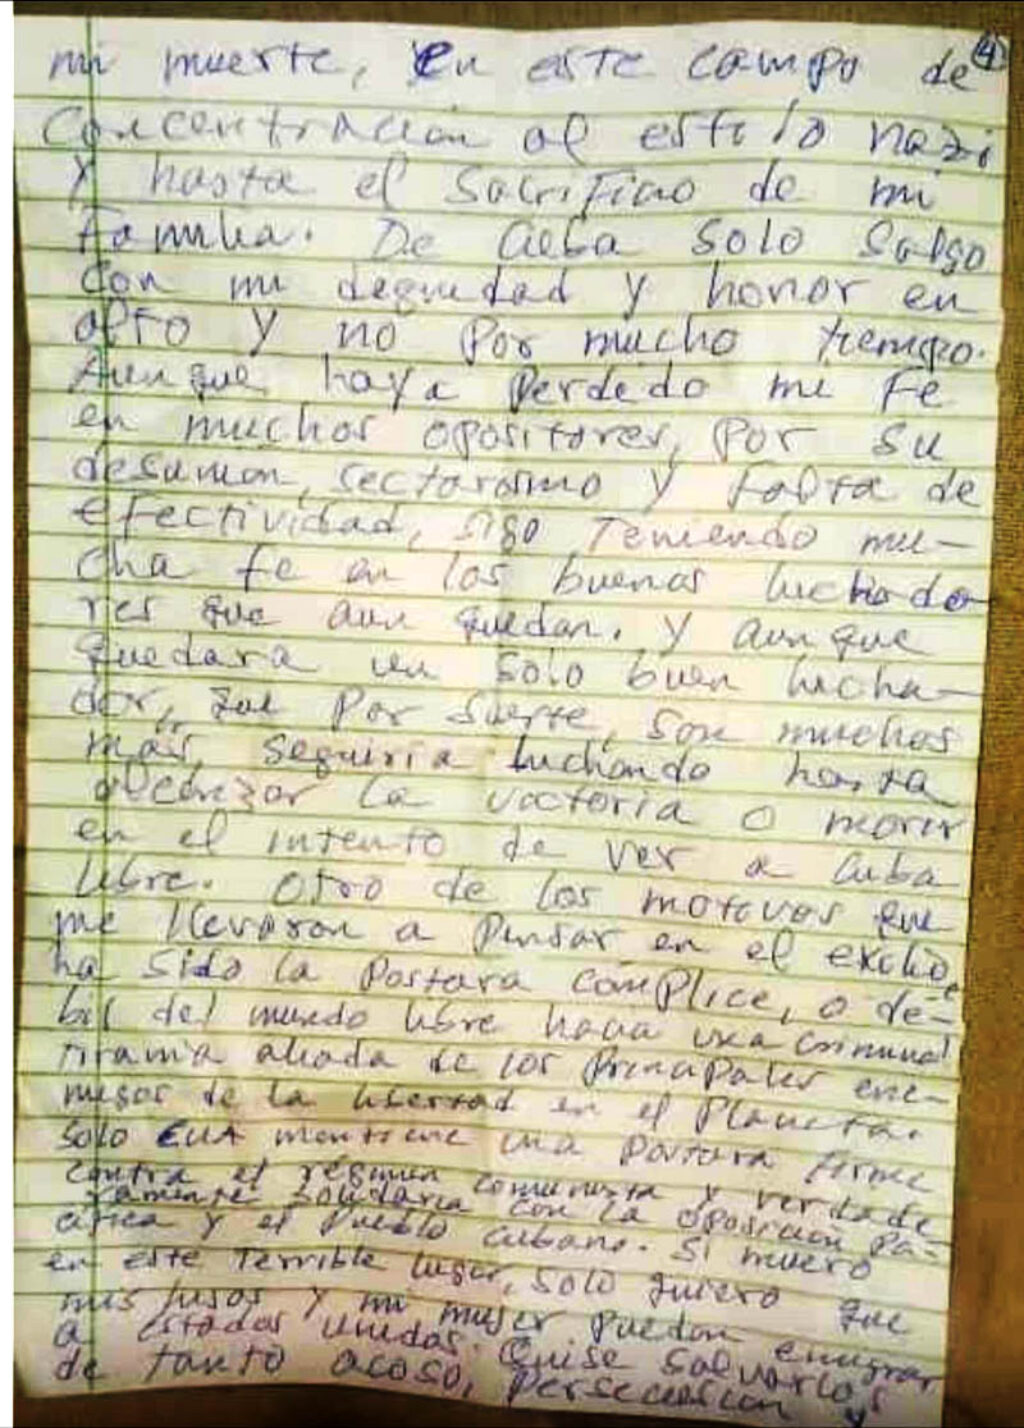 mi muerte, en este campo de 4
Concentración al estilo nazi
Y hasta el Sacrificio de mi
Familia. De Cuba solo Salgo
Con mi degnidad y honor en
alto y no por mucho tiempo.
Aunque haya Perdido mi Fe
en muchos opositores, por su
desunion, sectarismo y Falta de
efectividad, sigo Teniendo mu-
cha fe en los buenos luchado-
res que aun quedan. y aunque
quedara un solo buen lucha-
dor, que por suerte, son muchos
más, seguiría luchando hasta
alcanzar la victoria o morir
en el intento de ver a Cuba
libre. Otro de los motivos que
me llevaron a pensar en el exilio,
ha sido la Postura cómplice, o dé-
bil del mundo libre hacia una criminal
tiranía aliada de los Principales ene-
migos de la libertad en el Planeta.
Solo EUA mantiene una Postura firme
contra el régimen comunista y verdade
ramente solidaria con la oposición pa-
cífica y el Pueblo cubano. Si muero
en este Terrible lugar, solo quiero que
mis hijos y mi mujer puedan emigrar
a Estados Unidos. Quise salvarlos
de tanto acoso, persecución y